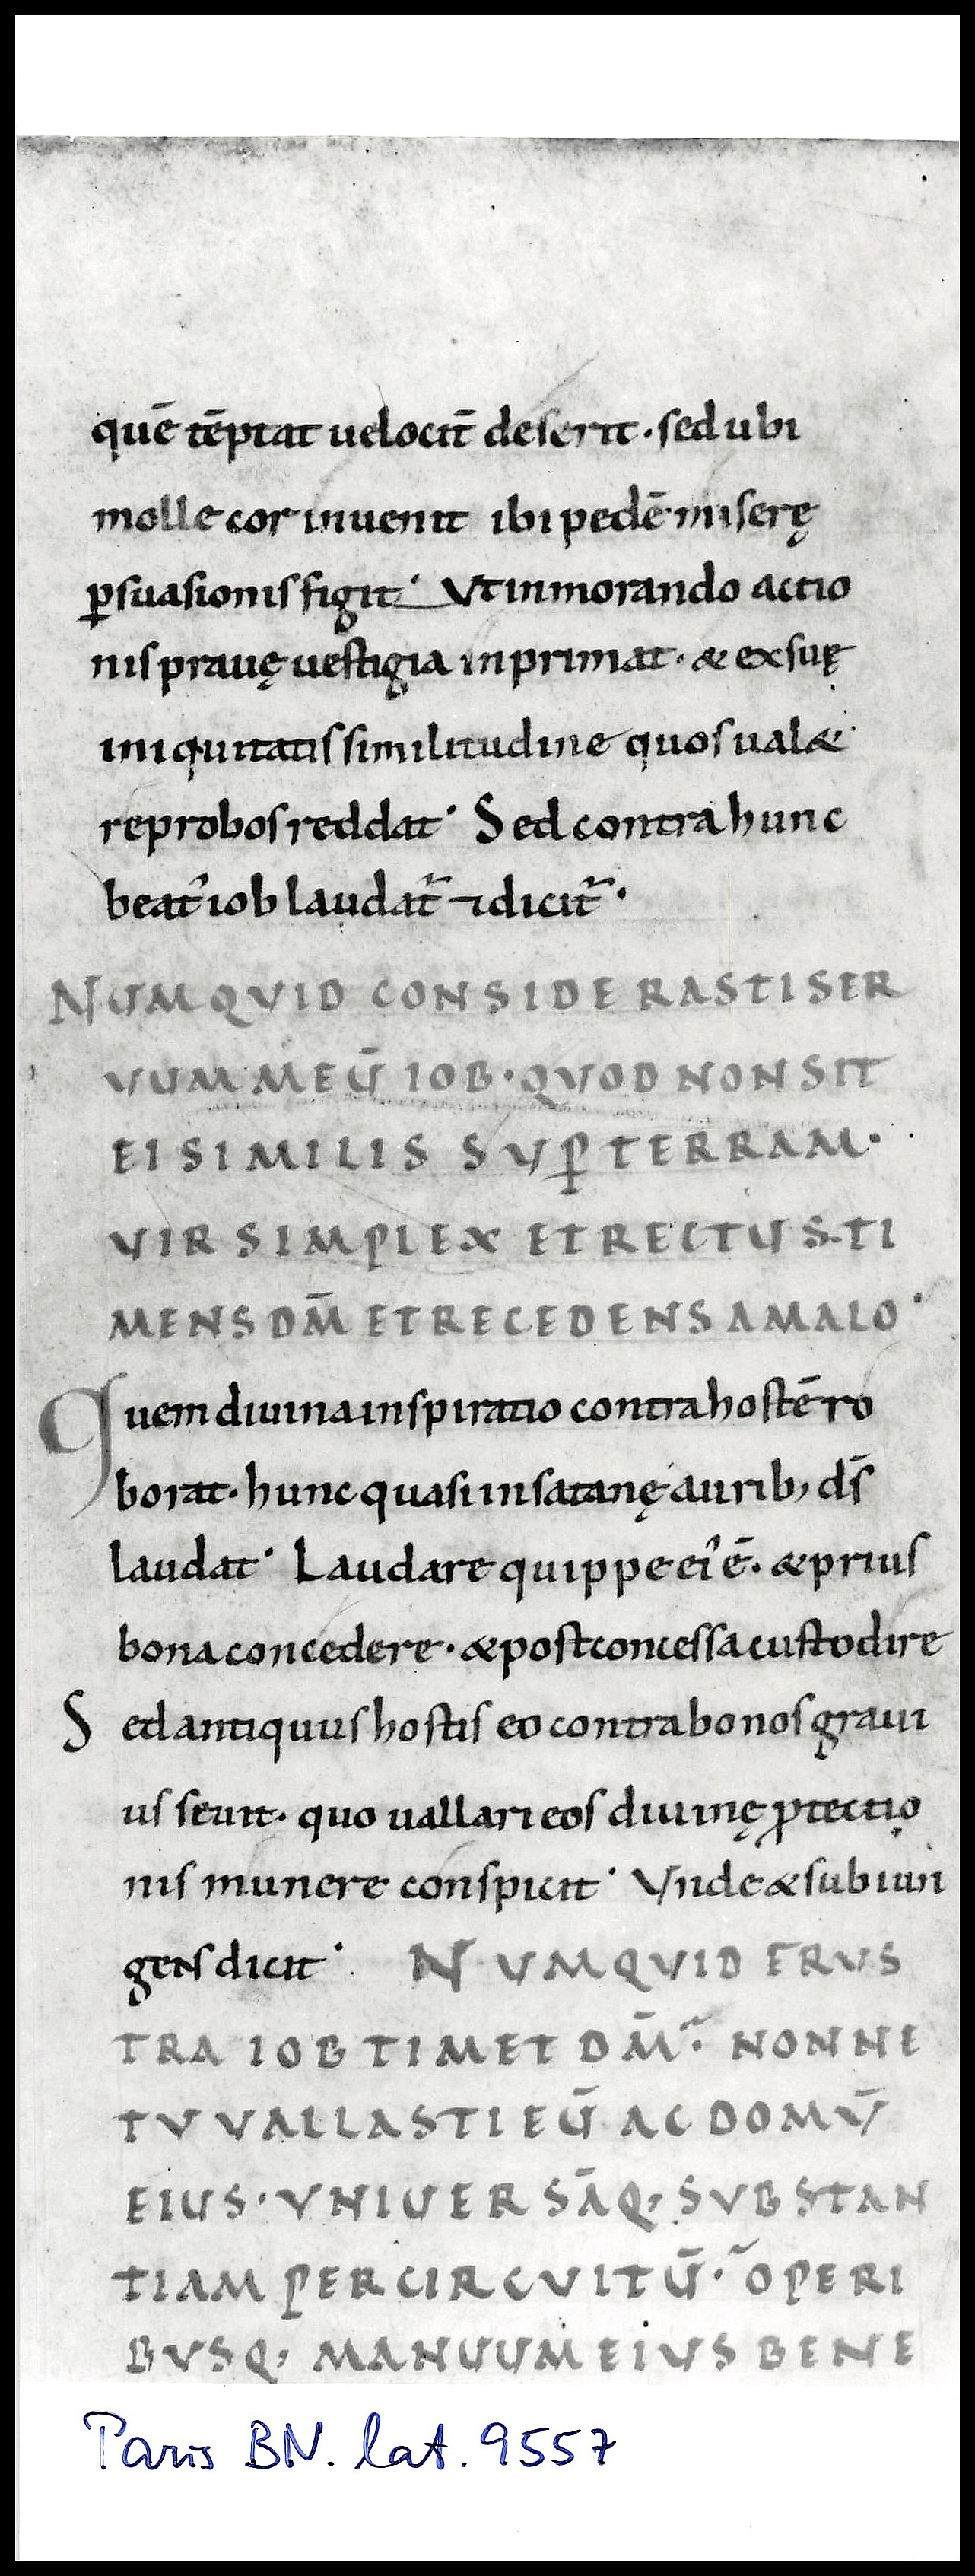 quē tēptat uelocit̄ deserit · sed ubi
molle cor inuenit ibi pedē miserę
ꝑsuasionis figit · Vt inmorando actio
nis prauę uestigia inprimat · & ex suę
iniquitatis similitudine quos ual&
reprobos reddat · Sed contra hunc
beat' iob laudat̄ ⁊ dicit̄ ·
NUMQVID CONSIDERASTI SER
VUM MEŪ IOB · QVOD NON SIT
EI SIMILIS SVꝑ TERRAM ·
VIR SIMPLEX ET RECTUS · TI
MENS DM̄ ET RECEDENS A MALO ·
Quem diuina inspiratio contra hostē ro
borat · hunc quasi in satanę aurib; ds̄
laudat · Laudare quippe ei' ē · & prius
bona concedere · & post concessa custodire
Sed antiquus hostis eo contra bonos graui
us seuit · quo uallari eos diuinę ꝓtectio
nis munere conspicit · Vnde & subiun
gens dicit · NUMQVID FRUS
TRA IOB TIMET DM̄ · NONNE
TV VALLASTI EŪ AC DOMV̄
EIUS · VNIUERSĀQ; SVBSTAN
TIAM PER CIRCVITŪ · OPERI
BVSQ; MANUUM EIVS BENE
Paris BN. lat. 9557